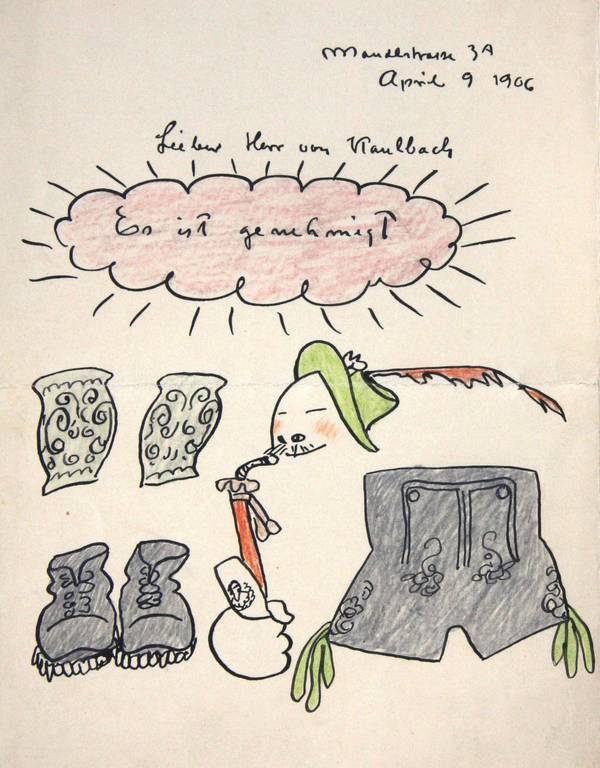 Mandlstrasse 3A
April 9 1906
Lieber Herr von Kaulbach
Es ist genehmigt